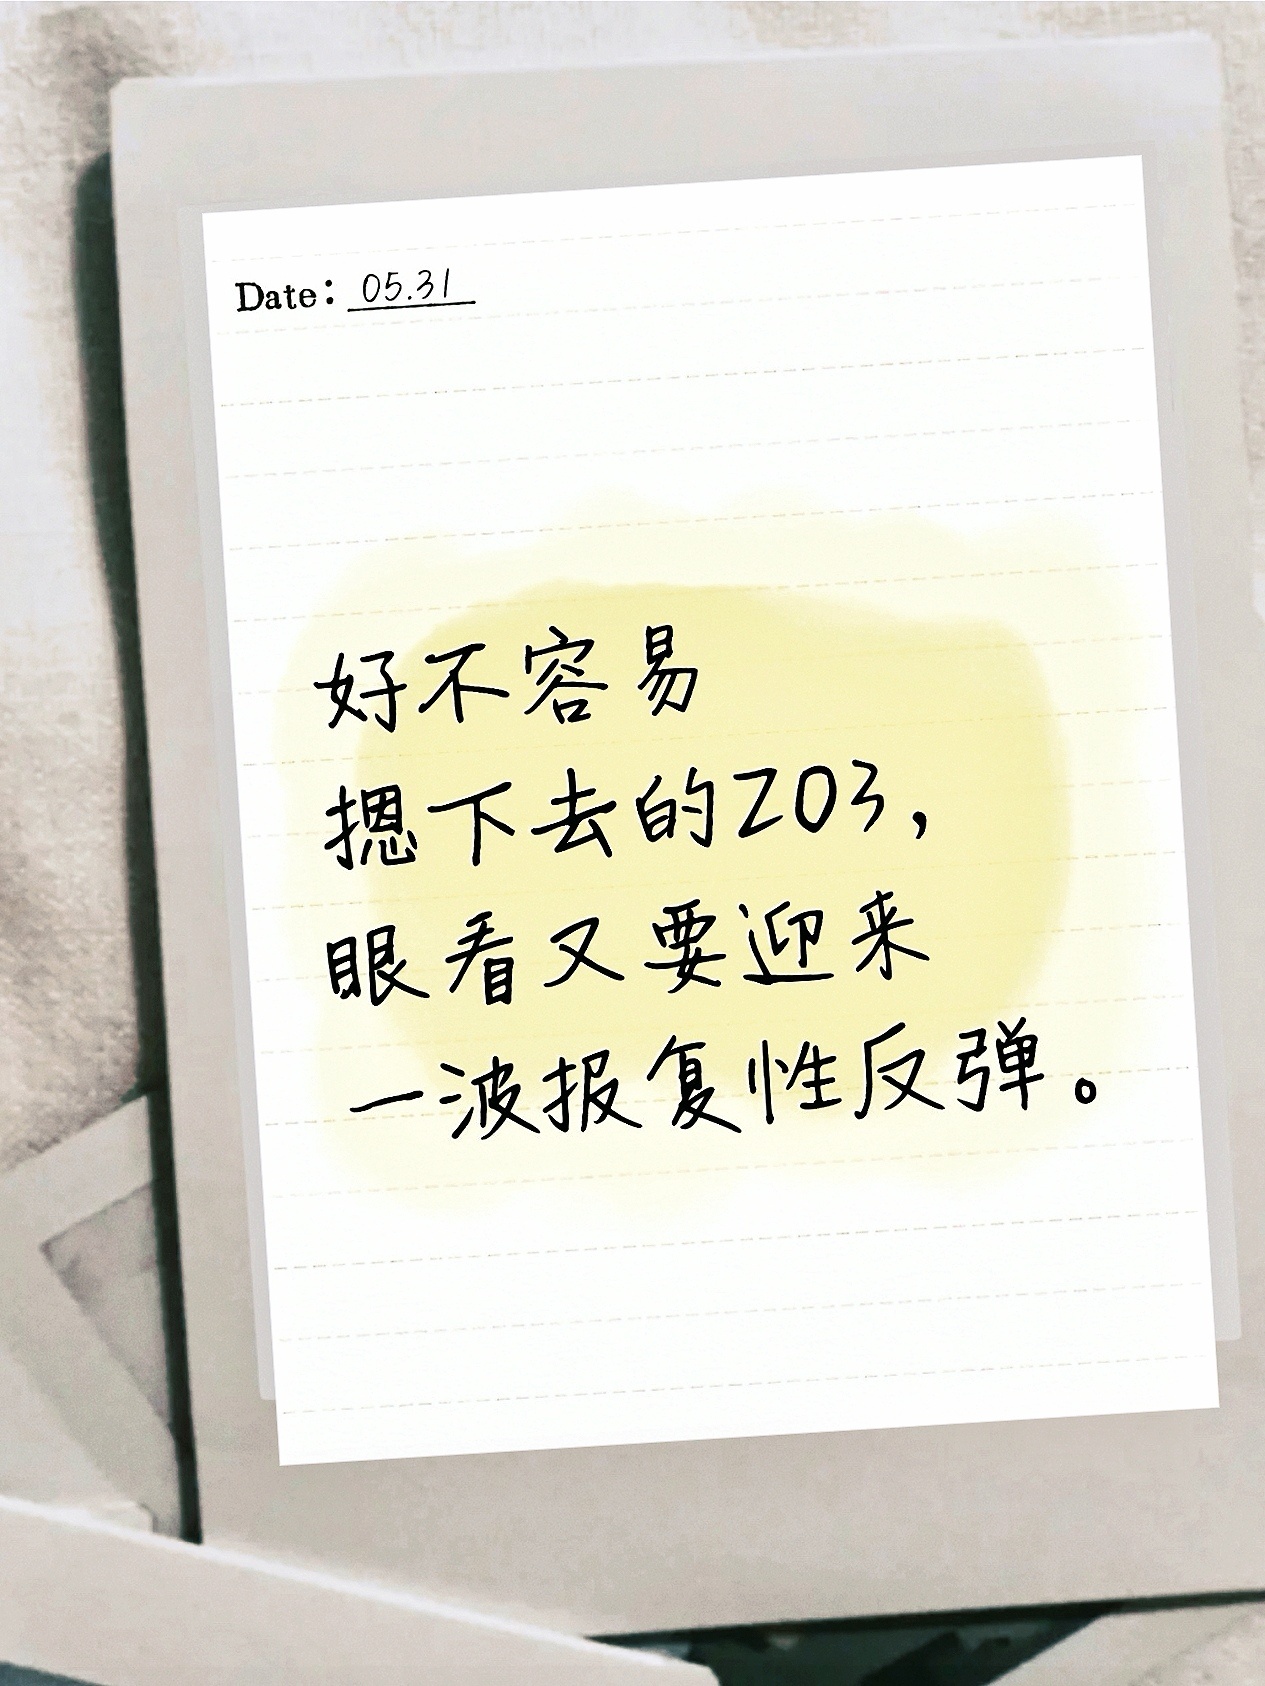 Date: 05.31
好不容易
摁下去的203，
眼看又要迎来
一波报复性反弹。